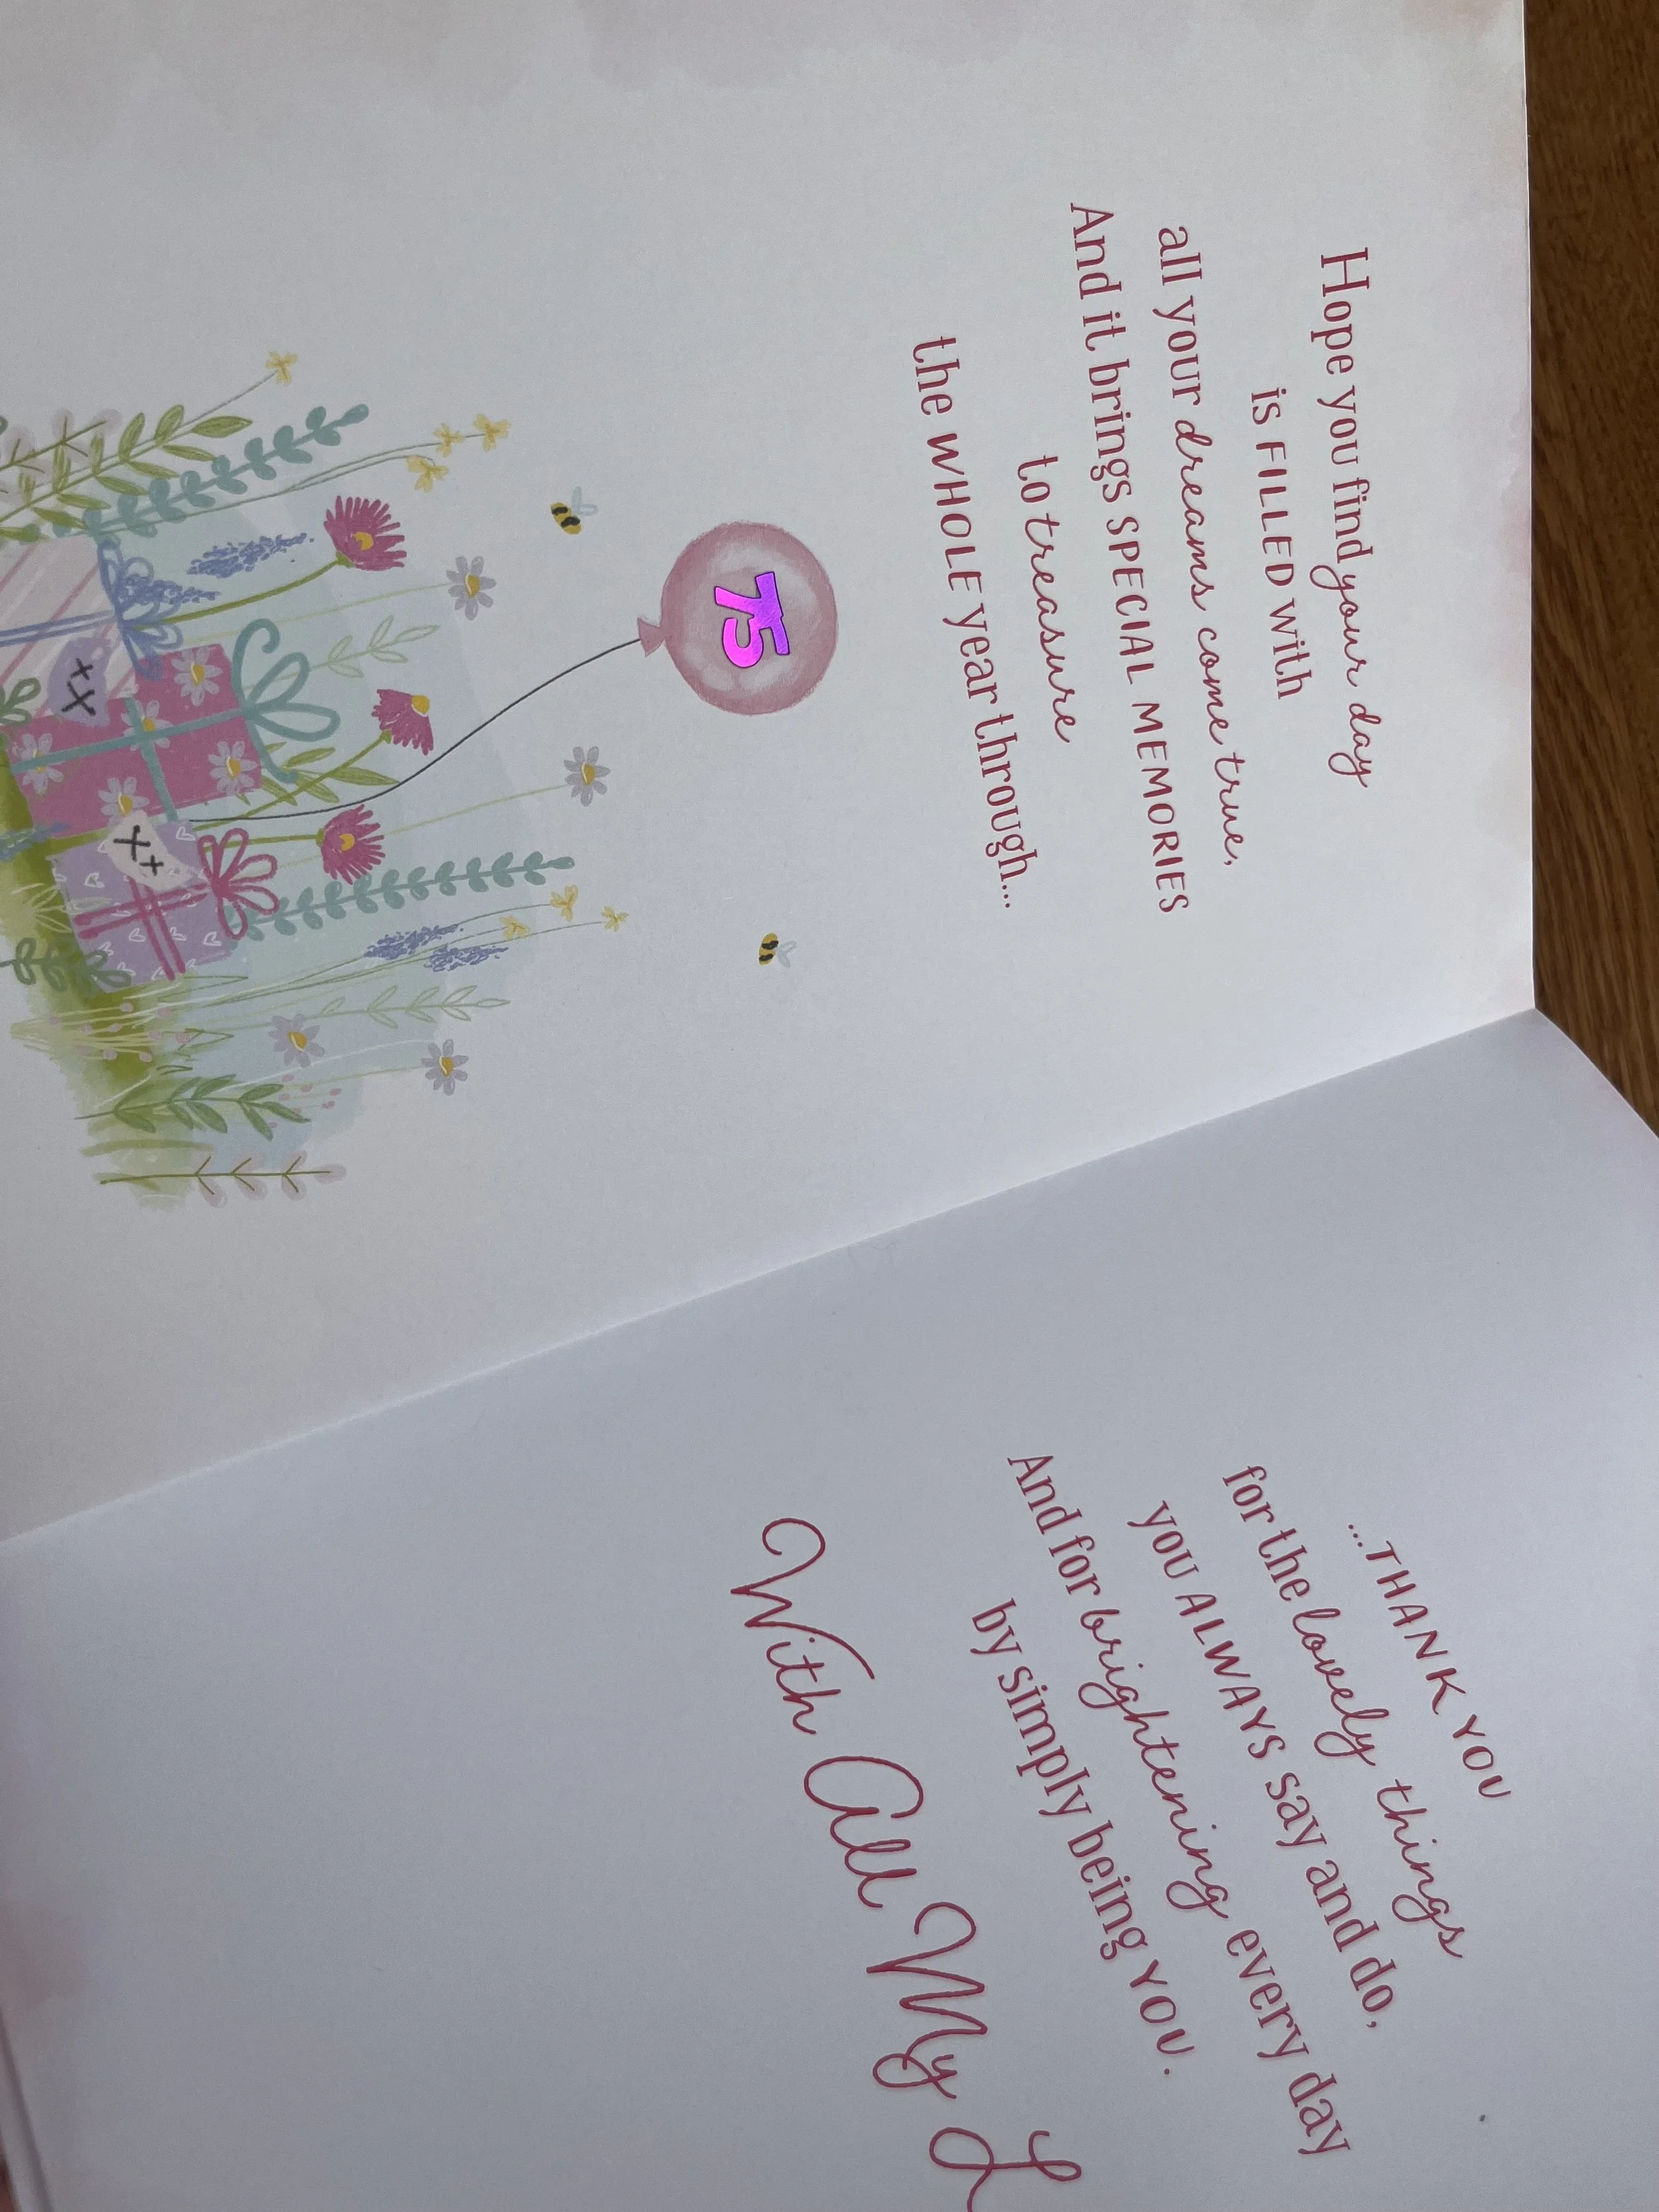 Hope you find your day
is FILLED with
all your dreams come true,
And it brings SPECIAL MEMORIES
to treasure
the WHOLE year through...
75
XX
XX
...THANK YOU
for the lovely things
you ALWAYS say and do,
And for brightening every day
by simply being YOU.
With All My L